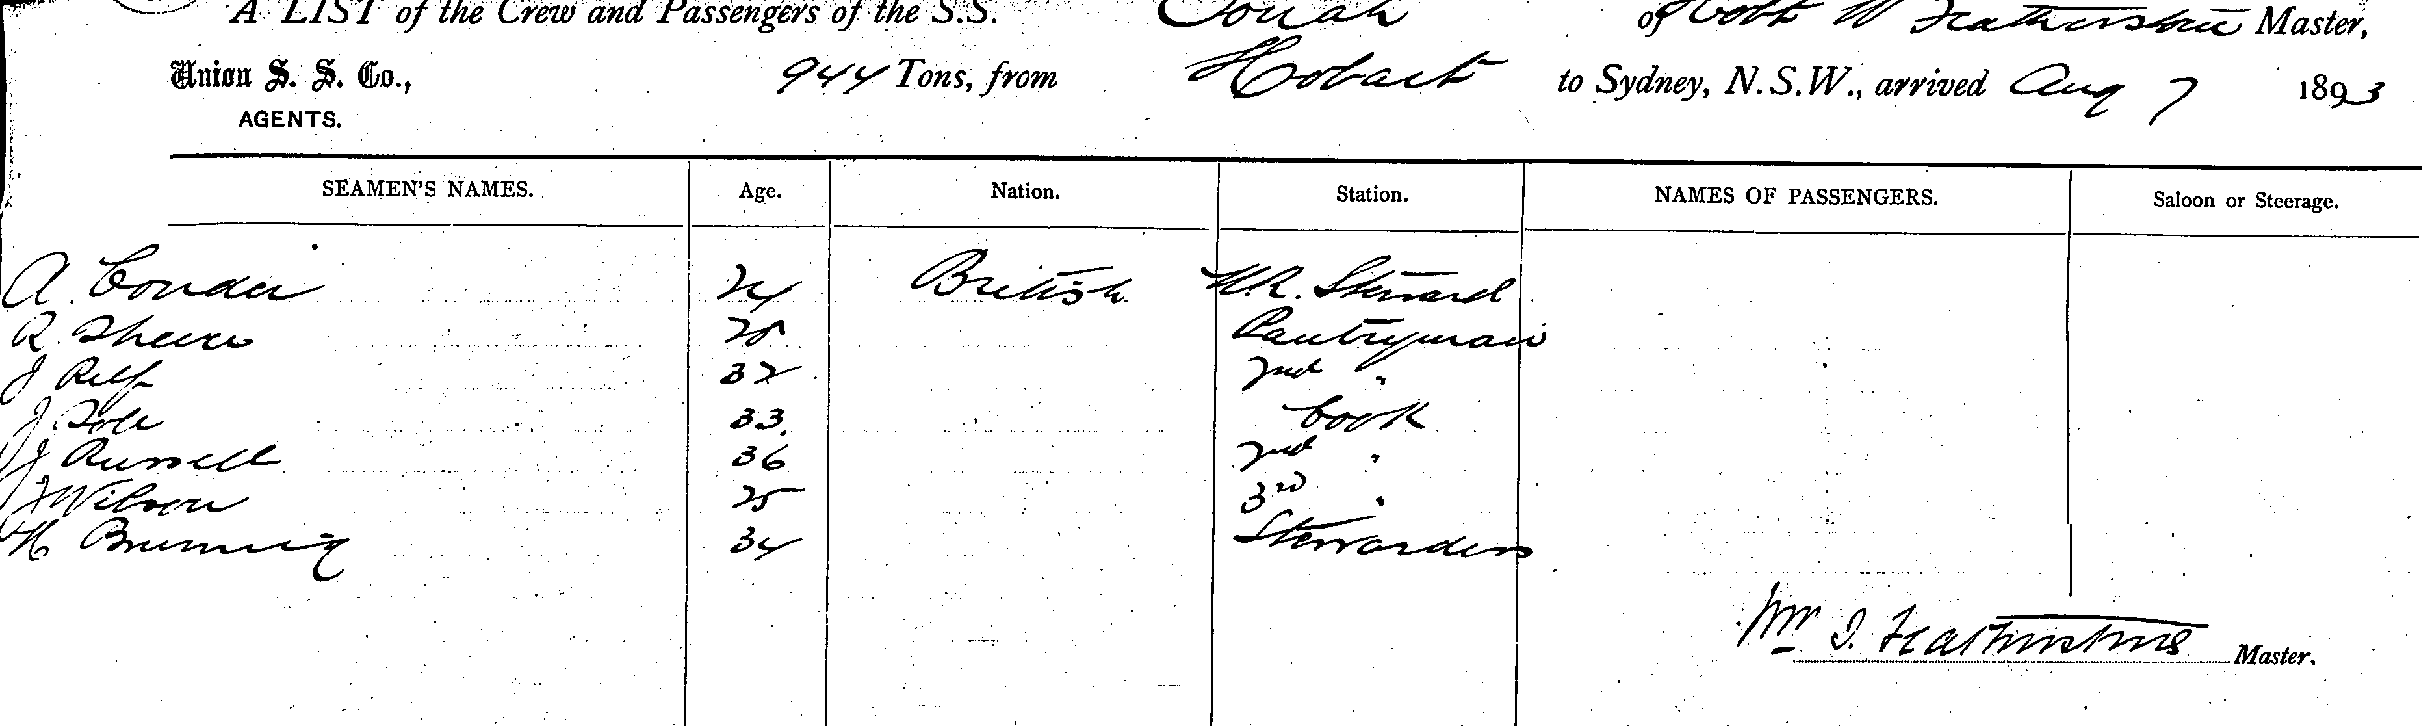 A LIST of the Crew and Passengers of the S.S. of W Featherstone Master,
Union S. S. Co., 944 Tons, from Hobart to Sydney, N.S.W., arrived Aug 7 1893
AGENTS.
SEAMEN'S NAMES. Age. Nation. Station. NAMES OF PASSENGERS. Saloon or Steerage.
A. Conder 24 British Steward
R. 28 Pantryman
J Relf 32 2nd "
J. 33 Cook
J Russell 36 2nd "
J Wilson 25 3rd "
H 34 Stewardess
Wm I. Featherstone Master.